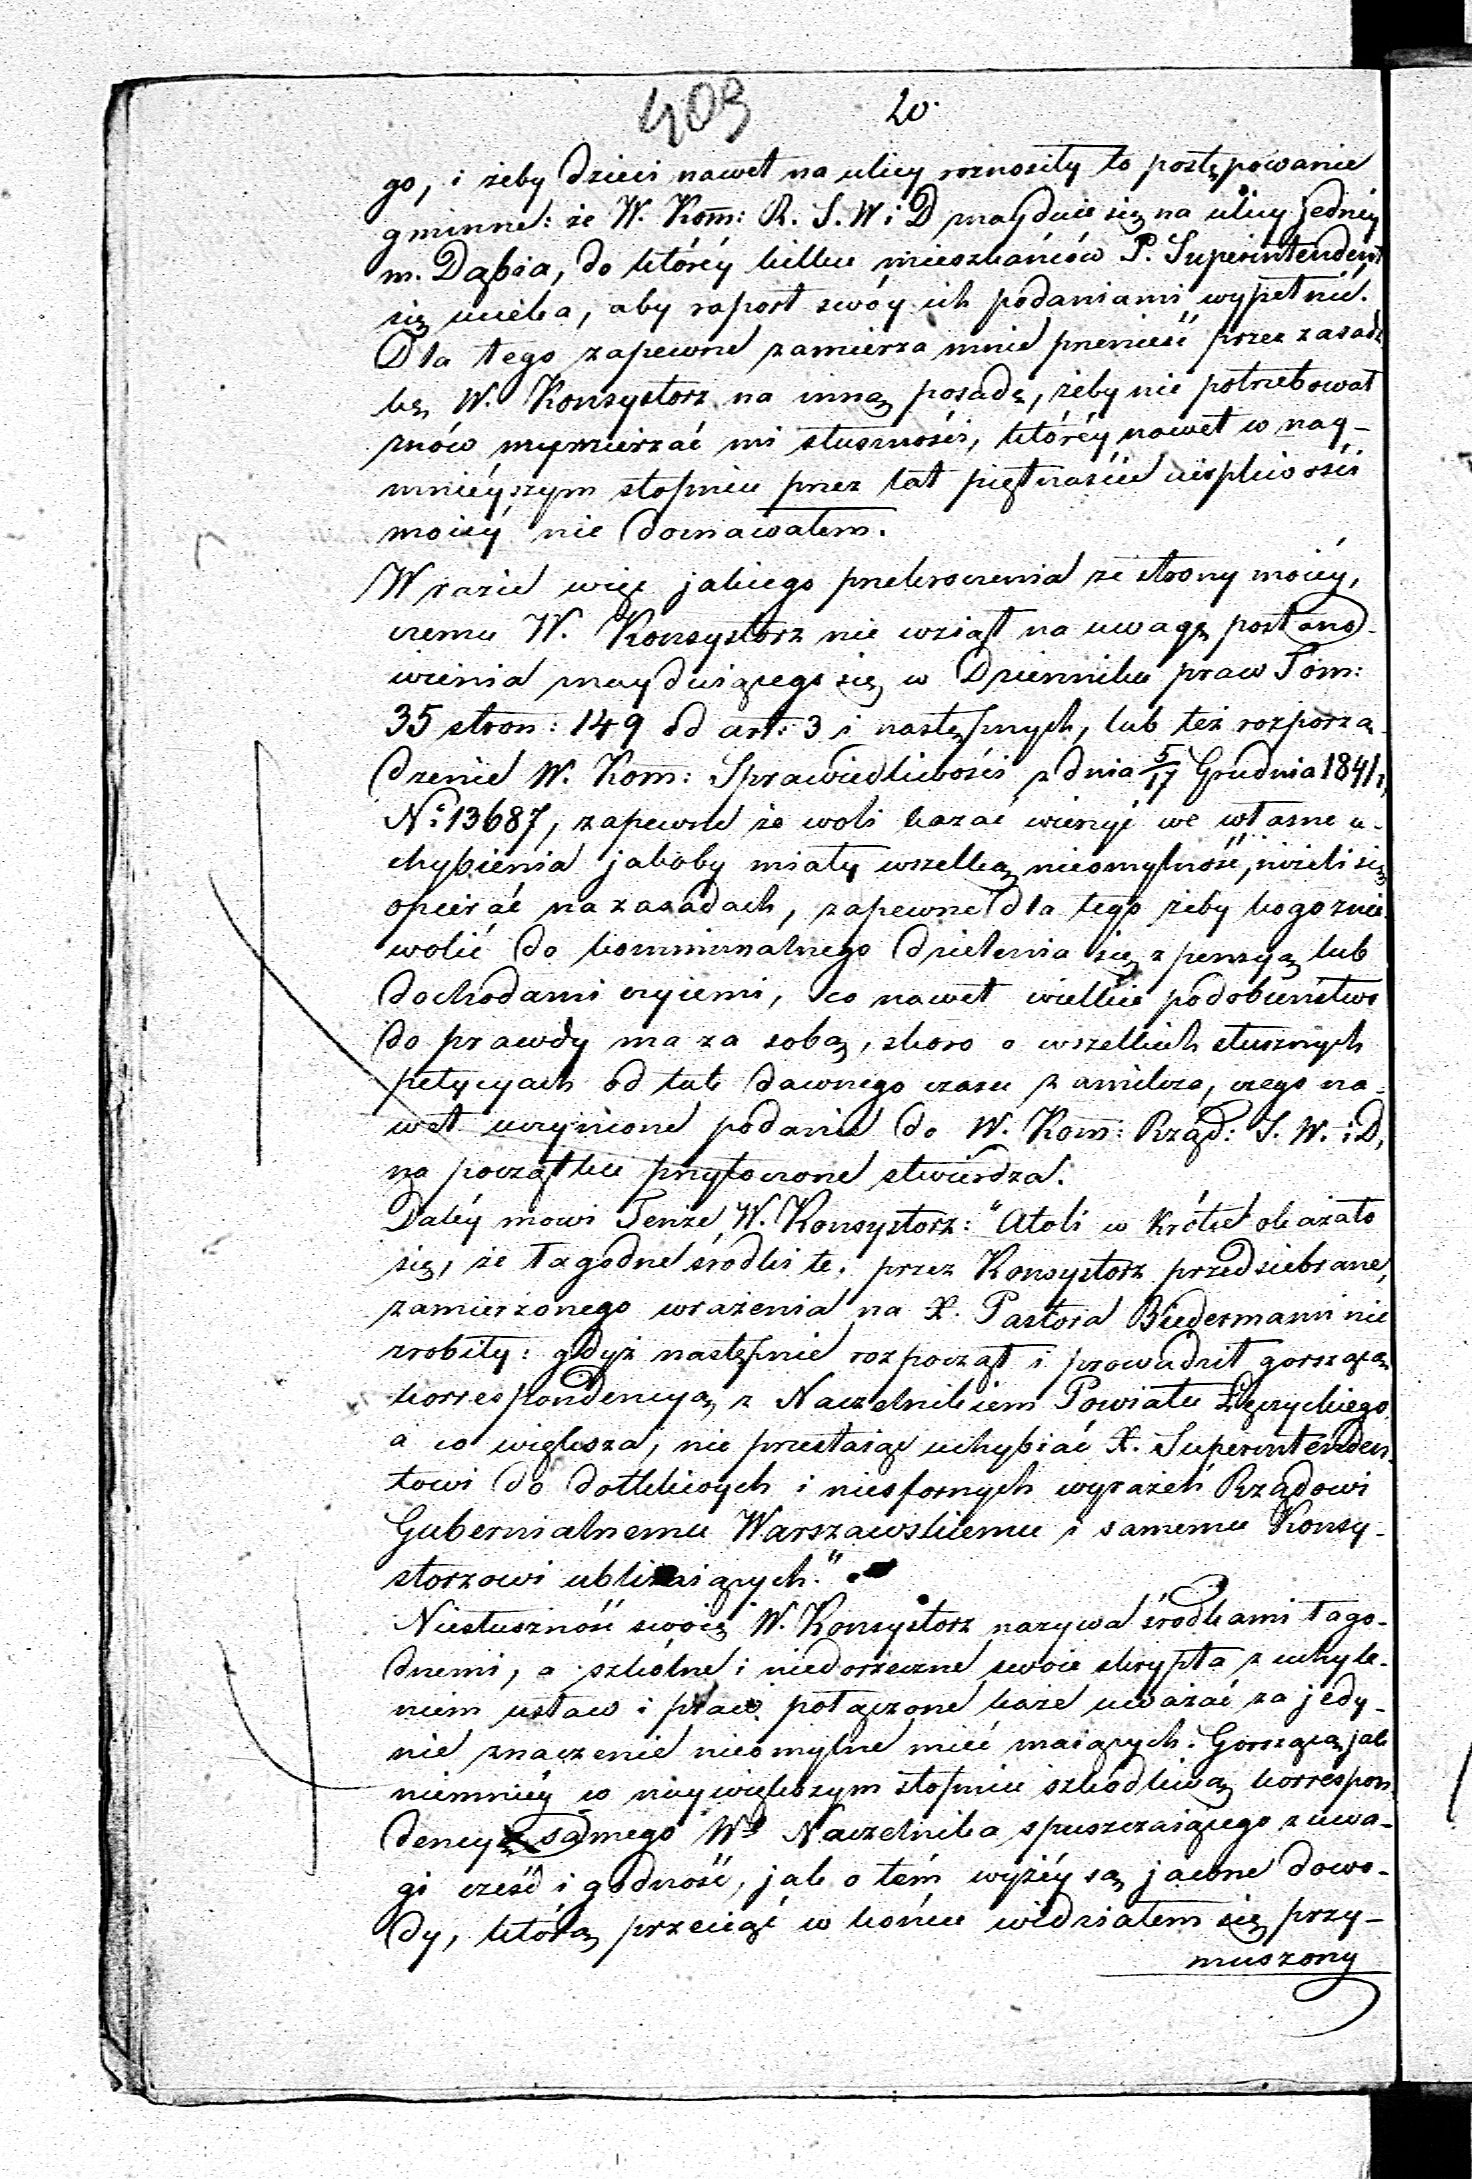 403 20.
go, i żeby dzieci nawet na ulicy roznosiły to postępowanie
gminne: że W. Kom̄: R. S. W i D znayduie się na ulicy jednéy
m. Dąbia, do któréy kilku mieszkańców P. Superintendent
się ucieka, aby raport swóy ich podaniami wypełnić.
Dla tego zapewne zamierza mnie przenieść przez zasadz
kę W. Konsystorz na inną posadę, żeby nie potrzebował
znów wymierzać mi słuszności, któréy nawet w nay-
mnieyszym stopniu przez lat piętnaście cierpliwości
moiéy nie doznawałem.
W razie więc jakiego przekroczenia ze strony moiéy,
czemu W. Konsystorz nie wziął na uwagę postano-
wienia znayduiącego się w Dzienniku praw Tom:
35 stron: 149 od art: 3 i następnych, lub też rozporzą-
dzenie W. Kom: Sprawiedliwości z dnia 5/17 Grudnia 1841 r,
N: 13687, zapewne że woli kazać wierzyć we własne u-
chybienia jakoby miały wszelką nieomylność, niżeli się
opierać na zasadach, zapewne dla tego żeby kogo znie-
wolić do kommunalnego dzielenia się z pensyą lub
dochodami czyiemi, co nawet wielkie podobieństwo
do prawdy ma za sobą, skoro o wszelkich słusznych
petycyach od tak dawnego czasu zamilcza, czego na-
wet uczynione podanie do W. Kom: Rząd: S. W. i D,
na początku przytoczone stwierdza.
Daléy mowi Tenże W. Konsystorz: "Atoli w krótce okazało
się, że łagodne środki te, przez Konsystorz przedsiebrane,
zamierzonego wrażenia na X. Pastora Biedermann nie
zrobiły: gdyż następnie rozpoczął i prowadził gorszącą
korrespondencyą z Naczelnikiem Powiatu Łęczyckiego,
a co większa, nie przestaiąc uchybiać X. Superintenden-
towi do dotkliwych i niesfornych wyrażeń Rządowi
Gubernialnemu Warszawskiemu i samemu Konsy-
storzowi ubliżaiących."
Niesłuszność swoię W. Konsystorz nazywa środkami łago-
dnemi, a szkolne i niedorzeczne swoie skrypta z uchyle-
niem ustaw i praw połączone każe uważać za jedy-
nie znaczenie nieomylne mieć maiących. Gorszącą jak
niemniéy w naywiększym stopniu szkodliwą korrespon
dencyę samego Wo Naczelnika spuszczaiącego z uwa-
gi cześć i godność, jak o tém wyżéy są jasne dowo-
dy, którą przeciąć w końcu widziałem się przy-
muszony